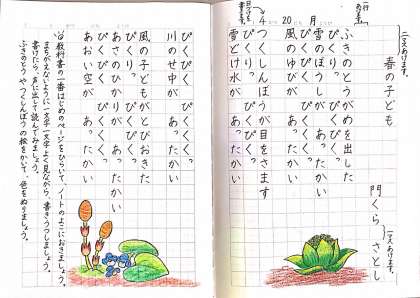 二マスあけます。
春の子ども
門くら さとし
一マスあけます。
一行あけます。
日づけを書きます。
4月20
ふきのとうがめを出した
雪のぼうしが あったかい
ぴくりっ。
ぴくぴく ぴくくく。
風のゆびが あったかい
つくしんぼうが目をさます
雪どけ水が あったかい
ぴくりっ。
ぴくぴく ぴくくく。
川のせ中が あったかい
風の子どもがとびおきた
ぴくりっ。
ぴくぴく ぴくくく。
あさのひかりが あったかい
あおい空が あったかい
教科書の一番はじめのページをひらいて、ノートのよこにおきましょう。
まちがえないように一文字一文字よく見ながら、書きうつしましょう。
書けたら、声に出して読んでみましょう。
ふきのとうやつくしんぼうの絵をかいて、色をぬりましょう。